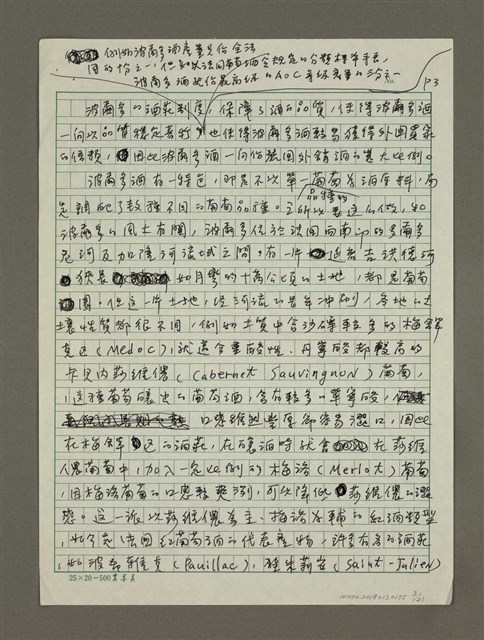 例如波爾多酒產量只佔全法
國的十分之一,但如以法國葡萄酒法規定的分類標準來看,
波爾多酒就佔最高級的AOC等級産量的三分之一
No.
P3
波爾多的酒莊制度,保障了酒的品質,使得波爾多酒
一向以品質穩定著稱,也使得波爾多酒較易獲得外國買家
的信賴,因此波爾多酒一向佔法國外銷酒的甚大比例。
波爾多酒有一特色,即是不以單一葡萄為酒原料,而
是調配了數種不同的葡萄品種。之所以要這麼做,和
品種的
波爾多的風土有關,波爾多位於法國西南
尼河及加隆河流域之間,有一片
狹長 如月彎的十萬公頃的土地,都是葡萄
園。但這一片土地,經河流的長年沖刷,各地的土
壤性質都很不同,例如土質中含沙礫較多的梅鐸
克區(Medoc),就適合單寧酸、丹寧酸都較高的
卡貝內蘇維儂(Cabernet Sauvingnon)葡萄,
這種葡萄釀出的葡萄酒,含有較多的單寧酸,
口感雖然豐厚卻容易澀口,因此
在梅鐸區的酒莊,在釀酒時就會 在蘇維
儂葡萄中,加入一定比例的梅洛(Merlot)葡萄
,因梅洛葡萄的口感較爽冽,可以降低蘇維儂的澀
感。這一派以蘇維儂為主、梅洛為輔的紅酒類型
,也可說是法國紅葡萄酒的代表産物,許多有名的酒莊
,如波雅克(Pauillac),聖朱莉安(Saint-Julien)
25×20=500
NMTL20180130175
3/121